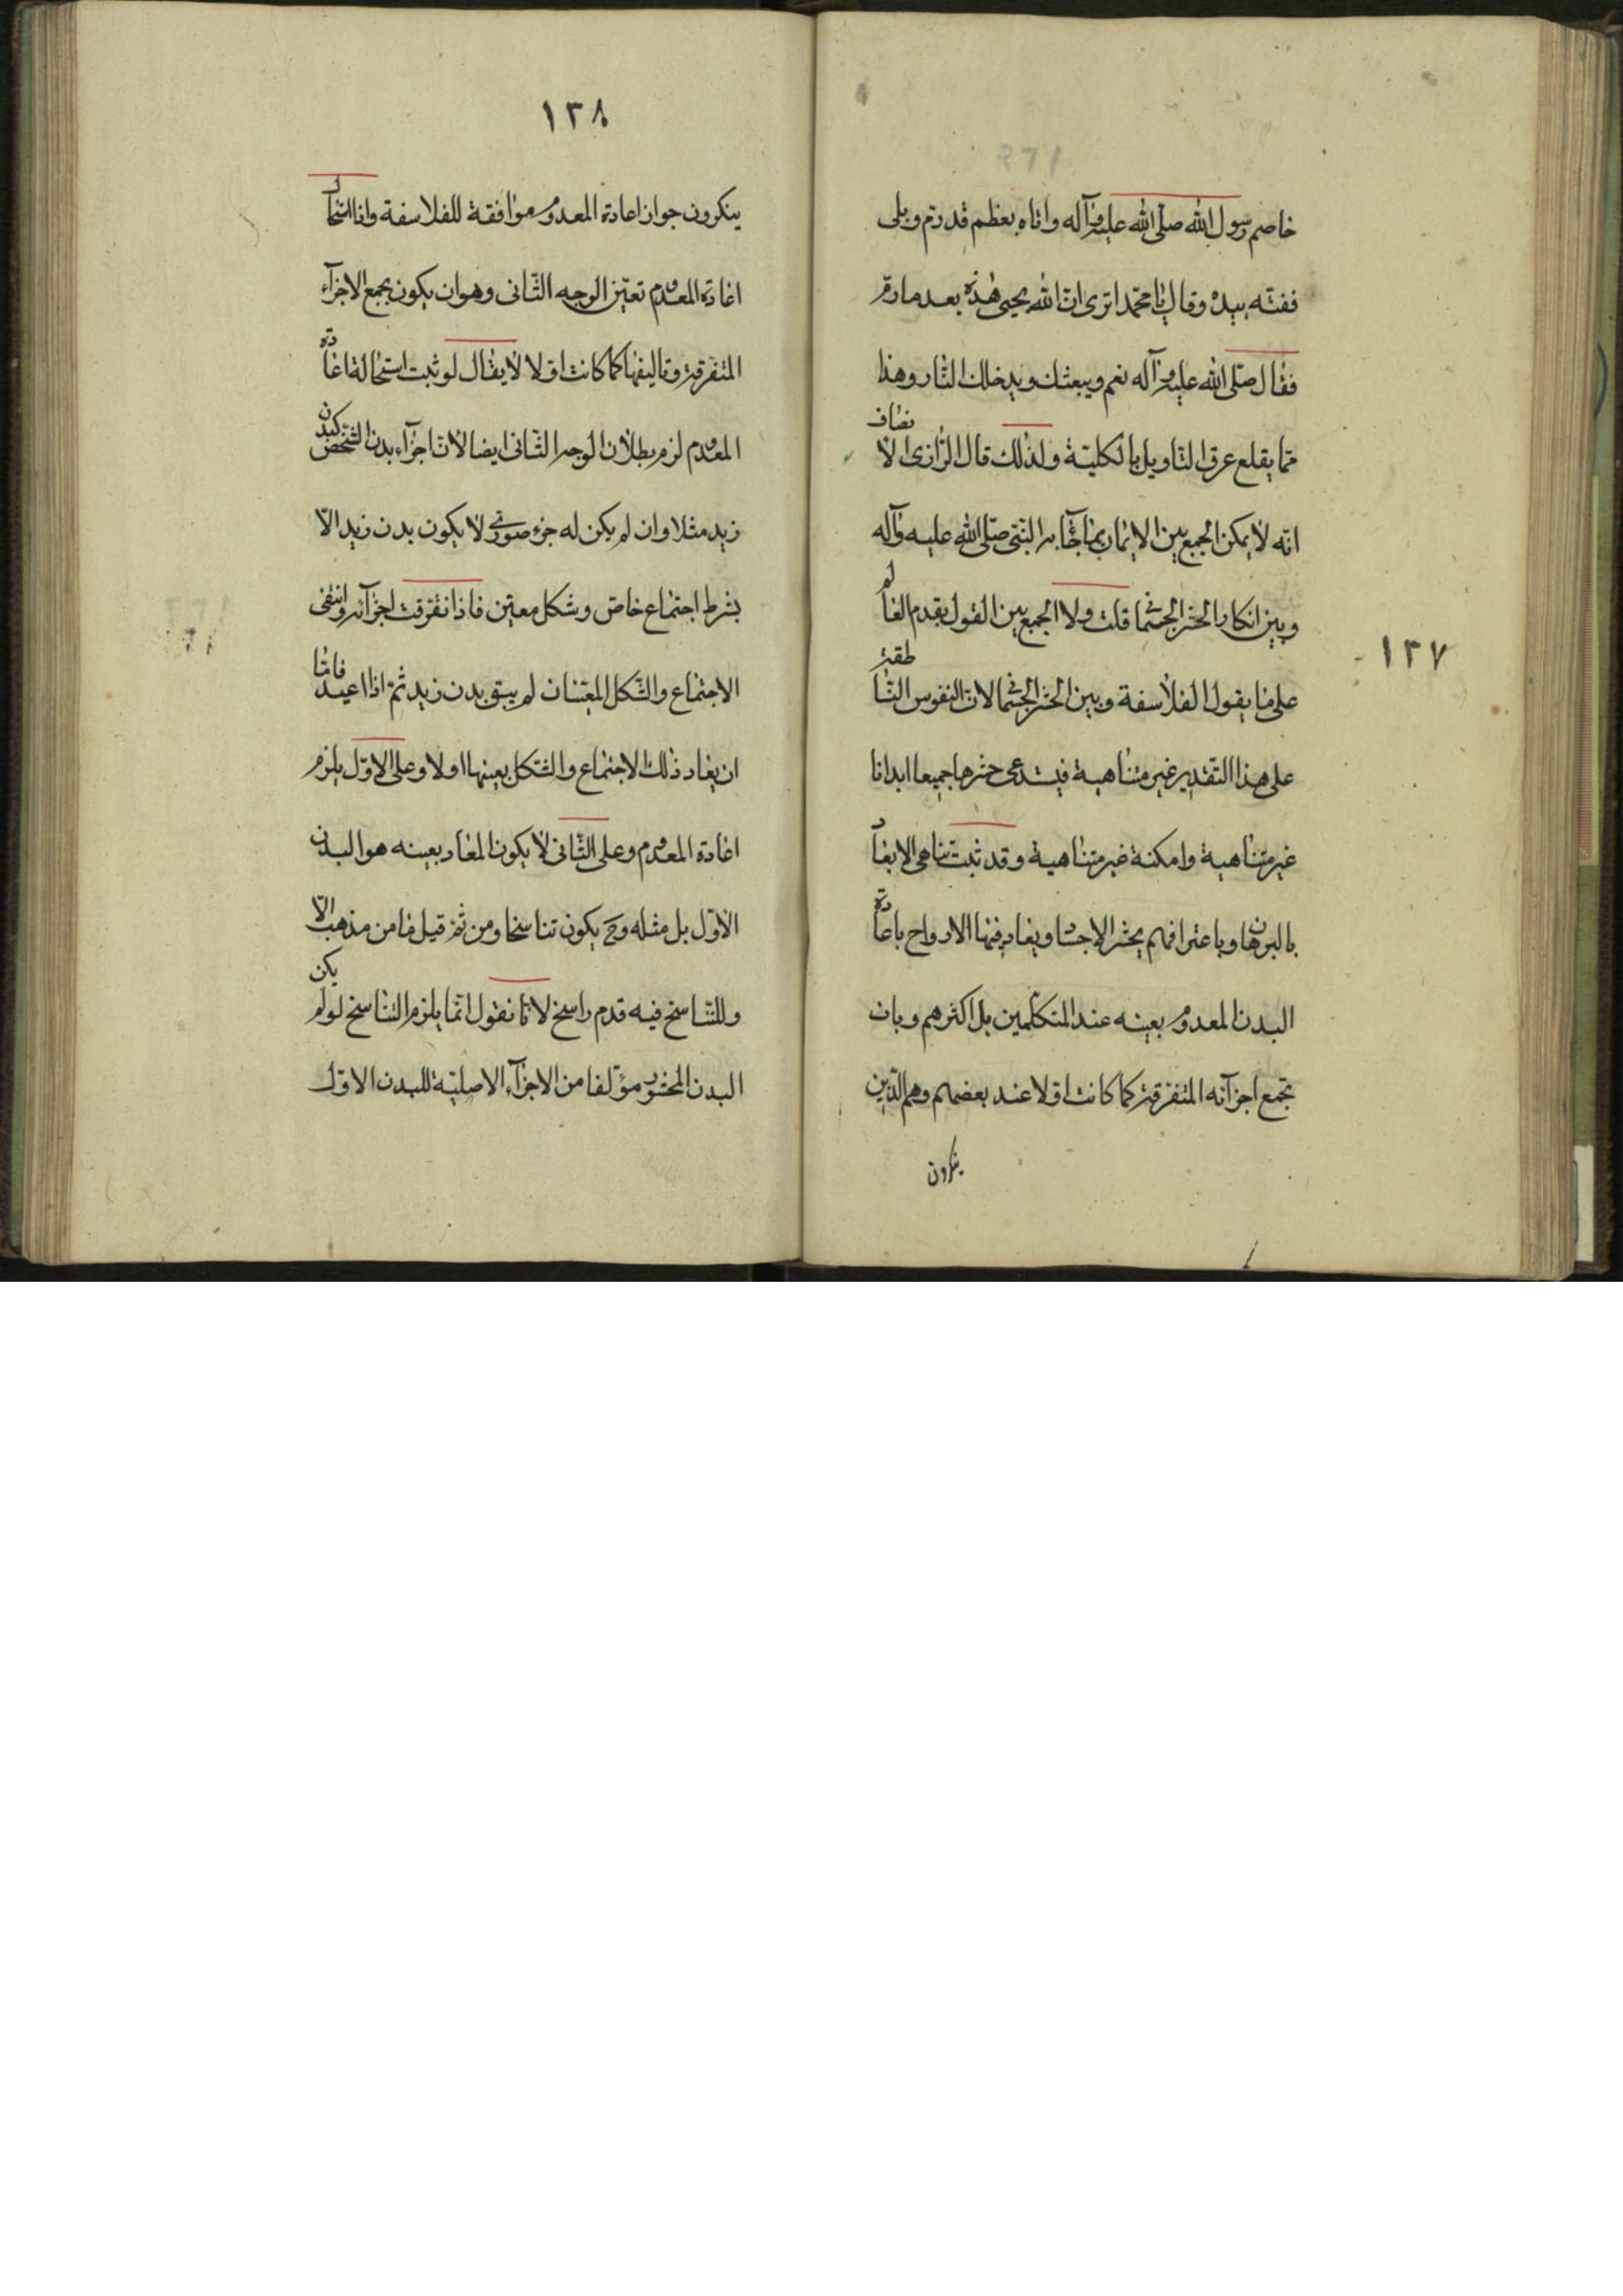 ١٣٧
خاصم رسول الله صلّى الله عليه وآله واتاه بعظم قد رمّ وبلى
ففتّه بيده وقال يا محمّد اترى انّ الله يحيى هذه بعد ما رمّ
فقال صلّى الله عليه وآله نعم ويبعثك ويدخلك النّار وهذا
ممّا يقلع عرق التاويل بالكليّة ولذلك قال الرّازى الانصاف
انّه لا يمكن الجمع بين الايمان بما جآء به النّبىّ صلّى الله عليه وآله
وبين انكار الحشر الجسمانى قلت ولا الجمع بين القول بقدم العالم
على ما يقول الفلاسفة وبين الحشر الجسمانى لانّ النفوس النّاطقة
على هذا التّقدير غير متناهية فيستدعى حشرها جميعا ابدانا
غير متناهية وامكنة غير متناهية وقد ثبت تناهى الابعاد
بالبرهان وباعترافهم يحشر الاجساد ويعاد فيها الارواح باعادة
البدن المعدوم بعينه عند المتكلّمين بل اكثرهم وبان
تجمع اجزآئه المتفرقة كما كانت اوّلا عند بعضهم وهم الّذين
ينكرون
١٣٨
ينكرون جواز اعادة المعدوم موافقة للفلاسفة واذا استحال
اعادة المعدوم تعيّن الوجه الثّانى وهو ان يكون بجمع الاجزآء
المتفرقة وتاليفها كما كانت اوّلا لا يقال لو ثبت استحالة اعادة
المعدوم لزم بطلان الوجه الثّانى ايضا لانّ اجزآء بدن الشّخص كبدن
زيد مثلا وان لم يكن له جزء صورىّ لا يكون بدن زيد الّا
بشرط اجتماع خاصّ وشكل معيّن فاذا تفرّقت اجزآئه وانتفى
الاجتماع والشّكل المعيّنان لم يبق بدن زيد ثمّ اذا اعيد فامّا
ان يعاد ذلك الاجتماع والشّكل بعينها اولا وعلى الاوّل يلزم
اعادة المعدوم وعلى الثّانى لا يكون المعاد بعينه هو البدن
الاوّل بل مثله وح يكون تناسخا ومن ثمّ قيل ما من مذهب الّا
وللتّناسخ فيه قدم راسخ لانّا نقول انّما يلزم التناسخ لو لم يكن
البدن المحشور مؤلّفا من الاجزآء الاصليّة للبدن الاوّل